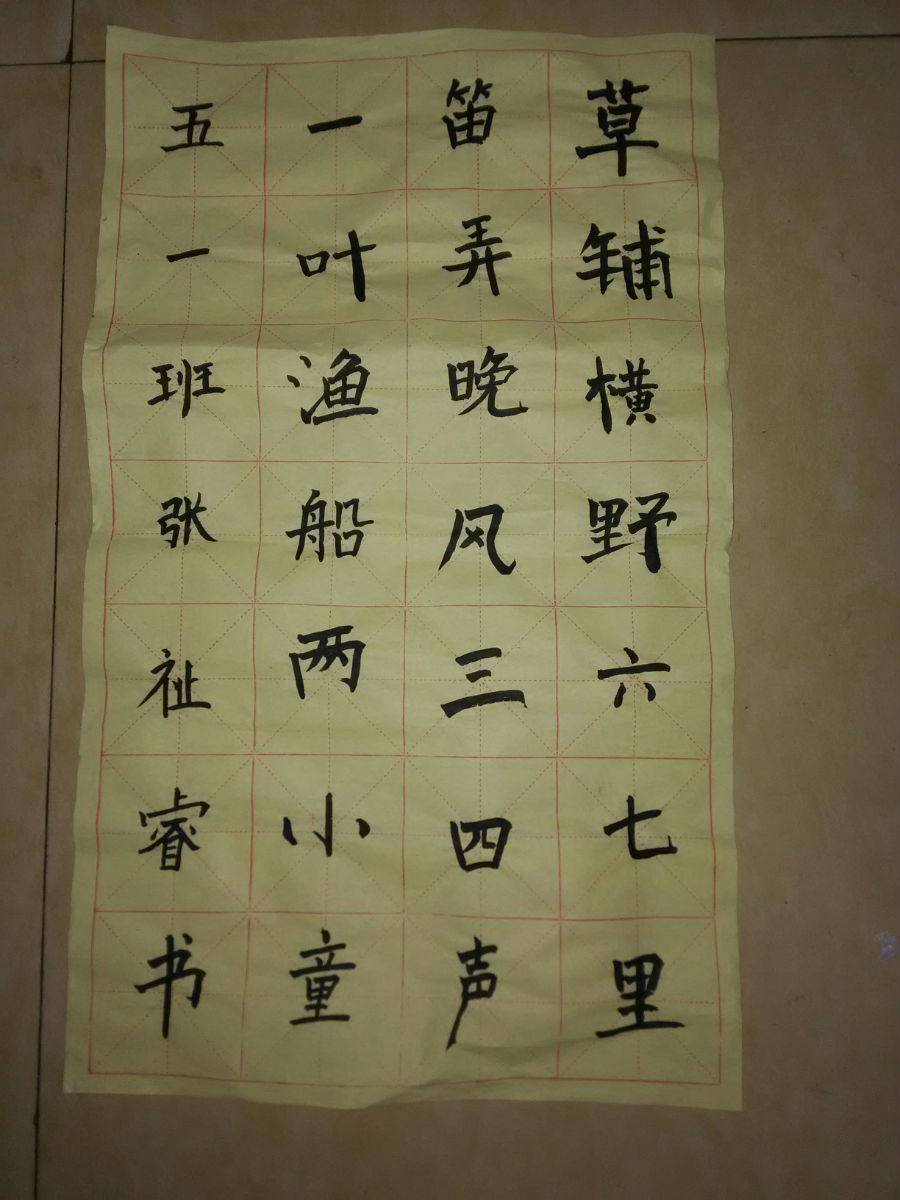 草铺横野六七里
笛弄晚风三四声
一叶渔船两小童
五一班张祉睿书